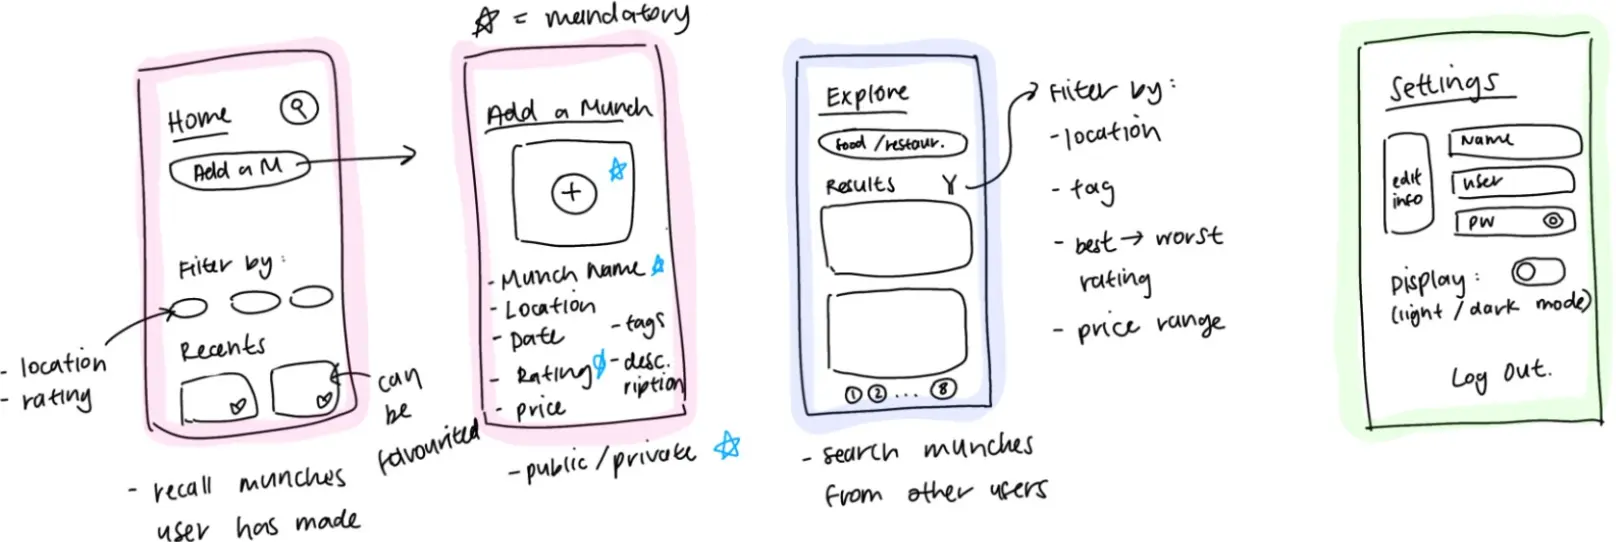 ☆ = mandatory
Home
Add a M
Filter by:
- location
- rating
Recents
can
be
favourited
- recall munches
user has made
Add a Munch
+
- Munch Name ☆
- Location
- Date
- Rating ☆
- price
- tags
- desc.
ription
- public/private ☆
Explore
food/restaur.
Results
1 2 ... 8
- search munches
from other users
Filter by:
- location
- tag
- best → worst
rating
- price range
Settings
edit
info
Name
user
pw
Display:
(light / dark mode)
Log Out.